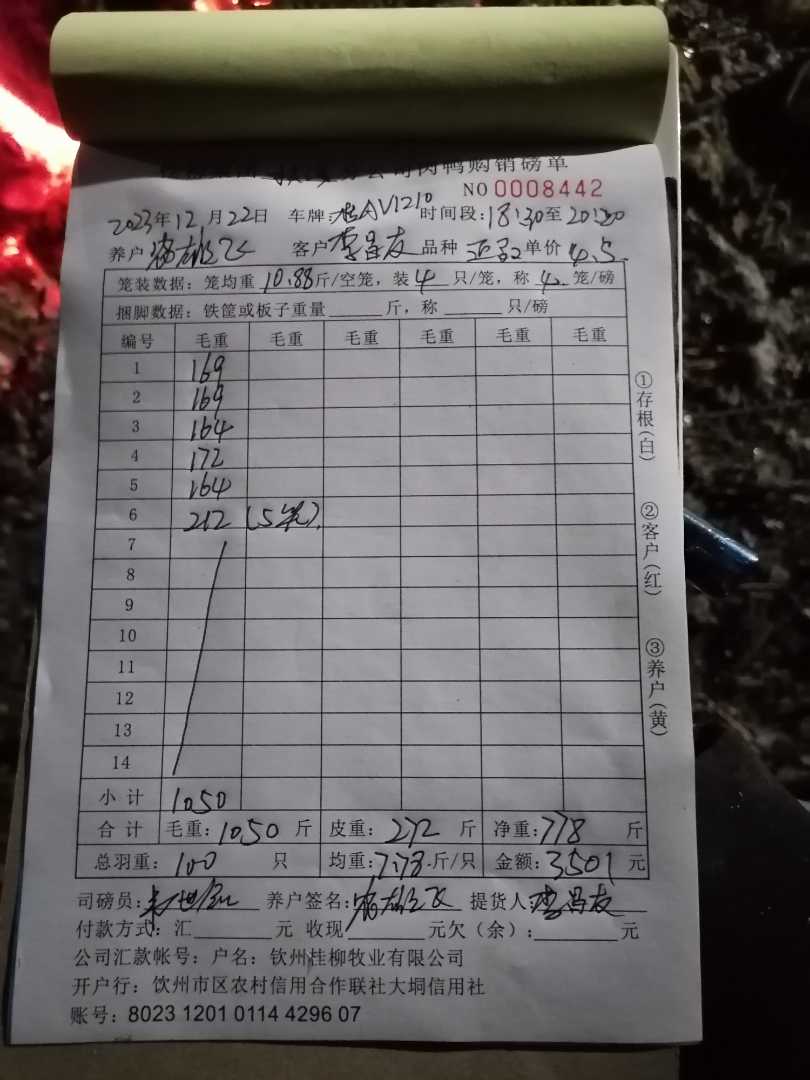 公司肉鸭购销磅单
NO 0008442
2023年12月22日 车牌:桂AV1210 时间段:18:30至20:20
养户 雄飞 客户 李昌友 品种 单价 4.5
笼装数据:笼均重 10.88斤/空笼,装 4 只/笼,称 4 笼/磅
捆脚数据:铁筐或板子重量______斤,称______只/磅
编号 毛重 毛重 毛重 毛重 毛重 毛重
1 169
2 169
3 164
4 172
5 164
6 212 (5笼)
7
8
9
10
11
12
13
14
小计 1050
合计 毛重:1050 斤 皮重:272 斤 净重:778 斤
总羽重:100 只 均重:7.78 斤/只 金额:3501 元
司磅员: 养户签名: 雄飞 提货人:李昌友
付款方式:汇______元 收现______元欠(余):______元
公司汇款帐号:户名:钦州桂柳牧业有限公司
开户行:饮州市区农村信用合作联社大垌信用社
账号:8023 1201 0114 4296 07
①存根(白) ②客户(红) ③养户(黄)